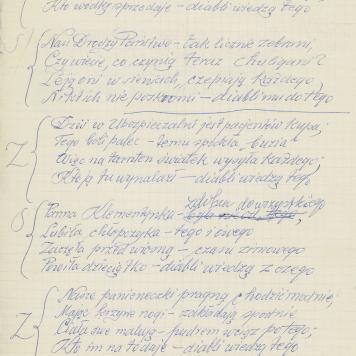 Kto wódkę sprzedaje – diabli wiedzą tego
Nasi Drodzy Państwo – tak licznie zebrani,
Czy wiecie, co czynią teraz chuligani?
Legioni w sieniach, czepiają każdego,
nie poskromi – diabli mu do tego
Z
Dziś w Ubezpieczalni jest pacjentów kupa;
Tego boli palec – temu spuchła „buzia"
Więc na taraten światek wysyła każdego;
Kto ją tu wynalazł – diabli wiedzą tego
6
Panna Klementynka – zdolna do wszystkiego
Lubiła chłopczyka – tego i owego
Zaczęła przed wiosną – czasu zimowego
Powiła dzieciątko – diabli wiedzą z czego
Z
Nasze panieneczki pragną chodzić modnie,
Mając krzywe nogi – zakładają spodnie
Ciało swe malują – pudrem wciąż po tego;
Kto im na to daje – diabli wiedzą tego